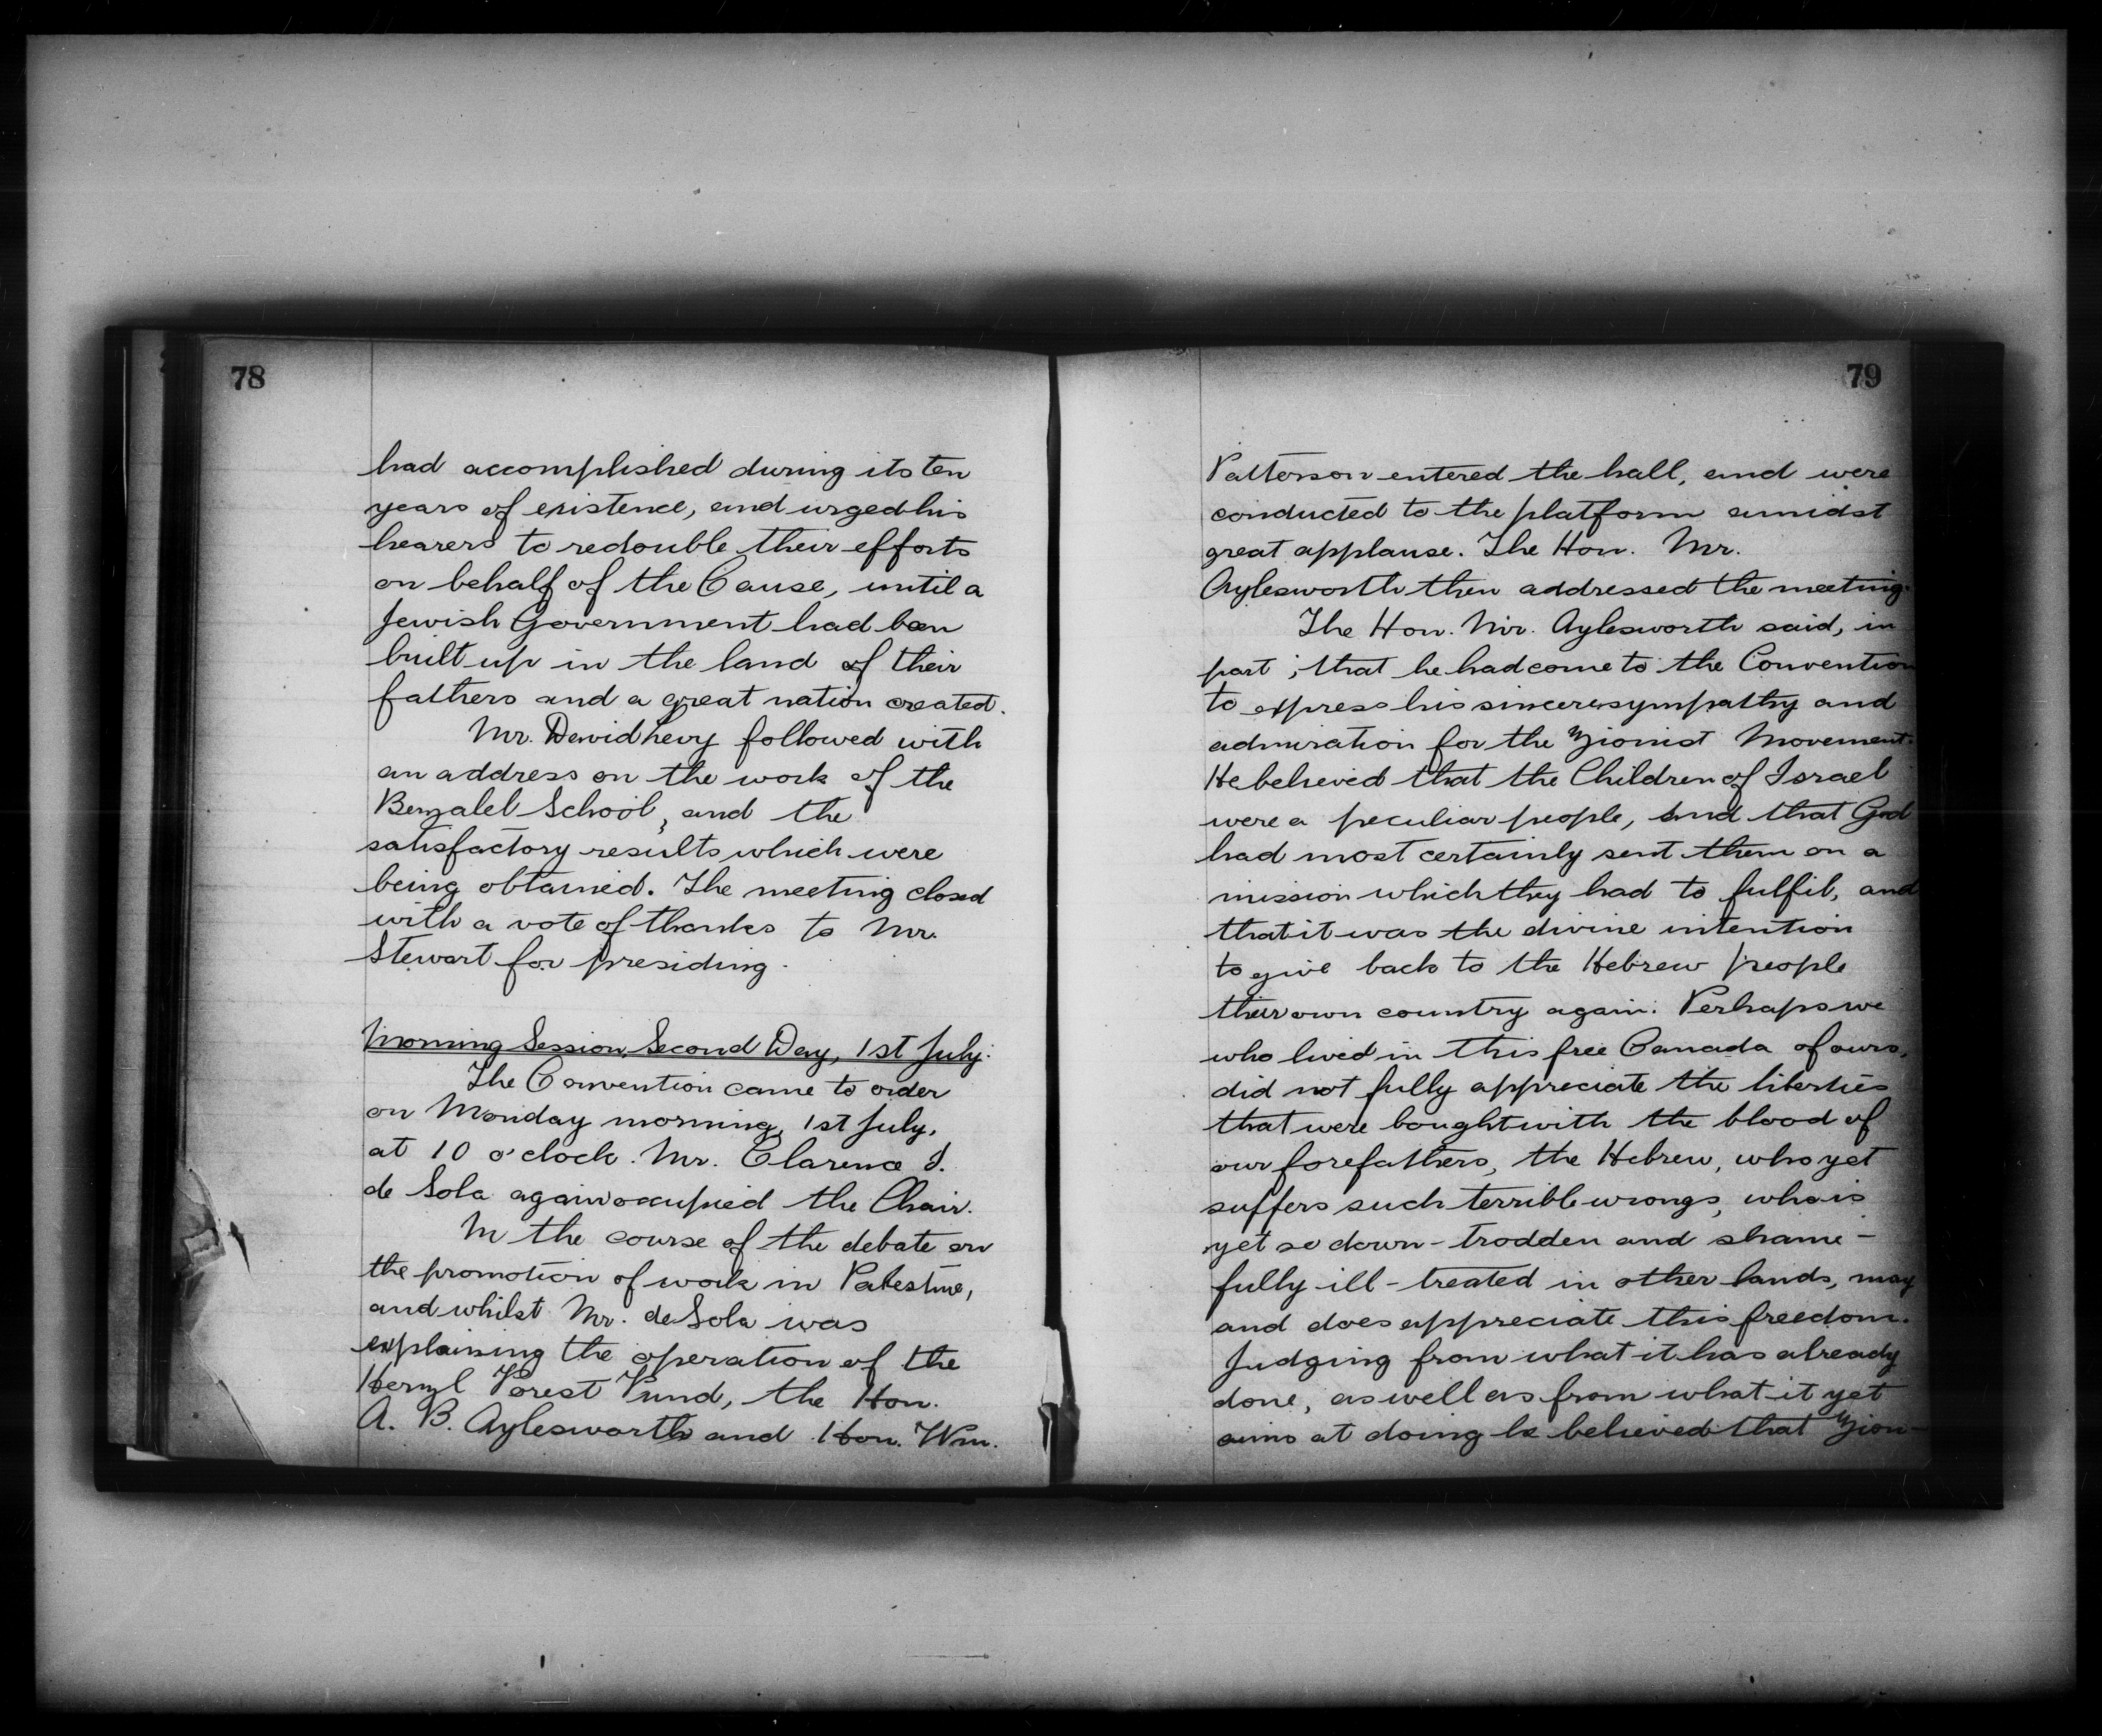 78
had accomplished during its ten
years of existence, and urged his
hearers to redouble their efforts
on behalf of the Cause, until a
Jewish Government had been
built up in the land of their
fathers and a great nation created.
Mr. David Levy followed with
an address on the work of the
Bezalel School, and the
satisfactory results which were
being obtained. The meeting closed
with a vote of thanks to Mr.
Stewart for presiding.
Morning Session, Second Day, 1st July.
The Convention came to order
on Monday morning, 1st July,
at 10 o'clock. Mr. Clarence I.
de Sola again occupied the Chair.
In the course of the debate on
the promotion of work in Palestine,
and whilst Mr. de Sola was
explaining the operation of the
Herzl Forest Fund, the Hon.
A. B. Aylesworth and Hon. Wm.
79
Patterson entered the hall, and were
conducted to the platform amidst
great applause. The Hon. Mr.
Aylesworth then addressed the meeting.
The Hon. Mr. Aylesworth said, in
part; that he had come to the Convention
to express his sincere sympathy and
admiration for the Zionist Movement.
He believed that the Children of Israel
were a peculiar people, and that God
had most certainly sent them on a
mission which they had to fulfil, and
that it was the divine intention
to give back to the Hebrew people
their own country again. Perhaps we
who lived in this free Canada of ours,
did not fully appreciate the liberties
that were bought with the blood of
our forefathers, the Hebrew, who yet
suffers such terrible wrongs, who is
yet so down-trodden and shame-
fully ill-treated in other lands, may
and does appreciate this freedom.
Judging from what it has already
done, as well as from what it yet
aims at doing he believed that Zion-